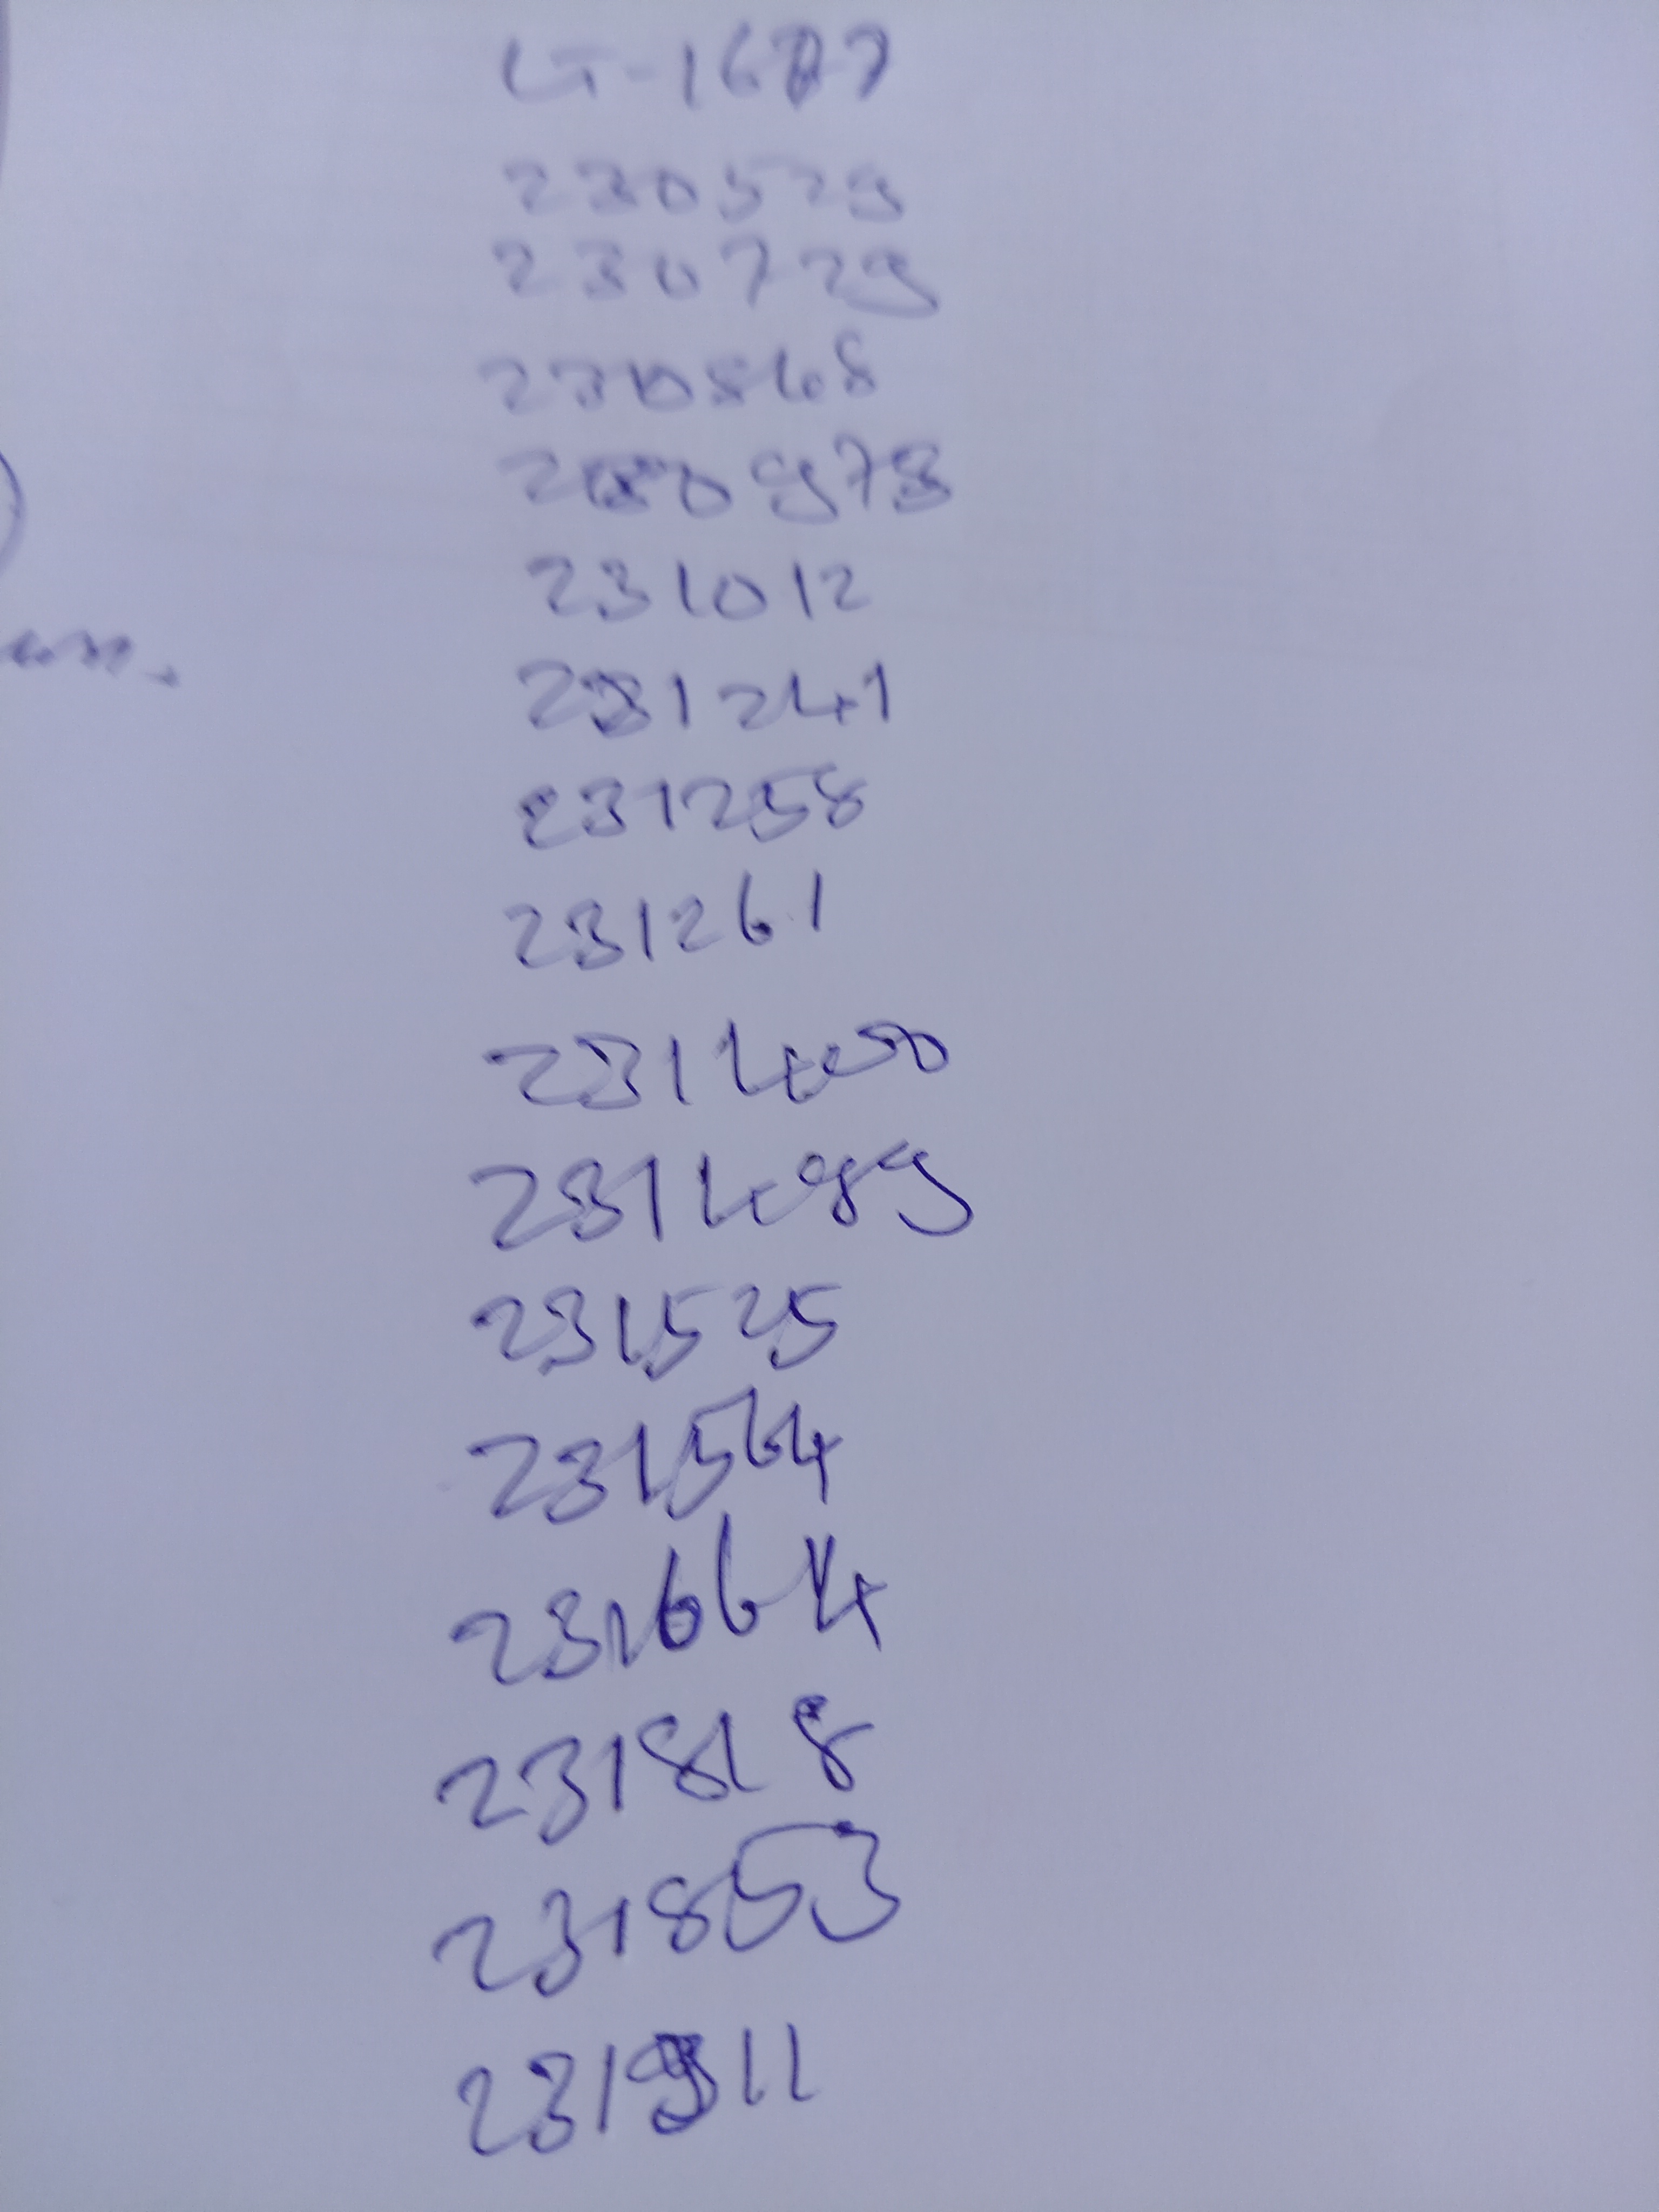 LT-1677
230529
230729
230868
230973
231012
231241
231258
231261
231400
231489
231525
231564
231664
231818
231853
231911